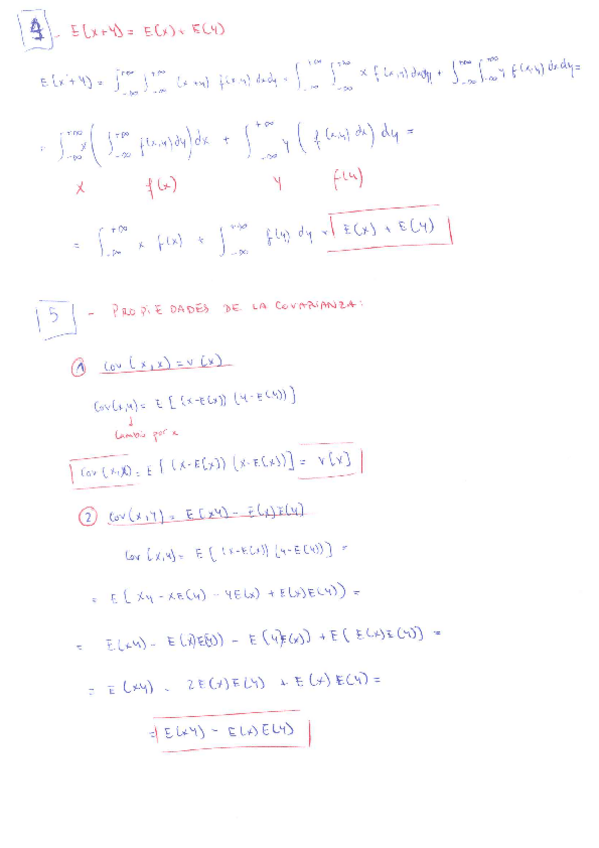 4 - E(x+y) = E(x) + E(y)
E(x+y) = ∫_{-∞}^{+∞} ∫_{-∞}^{+∞} (x+y) f(x,y) dxdy = ∫_{-∞}^{+∞} ∫_{-∞}^{+∞} x f(x,y) dxdy + ∫_{-∞}^{+∞} ∫_{-∞}^{+∞} y f(x,y) dxdy =
= ∫_{-∞}^{+∞} x ( ∫_{-∞}^{+∞} f(x,y) dy ) dx + ∫_{-∞}^{+∞} y ( f(x,y) dx ) dy =
x f(x) y f(y)
= ∫_{-∞}^{+∞} x f(x) + ∫_{-∞}^{+∞} f(y) dy = E(x) + E(y)
5 - PROPIEDADES DE LA COVARIANZA:
1 Cov(x,x) = V(x)
Cov(x,y) = E[(x-E(x)) (y-E(y))]
↓
Cambio por x
Cov(x,x) = E[(x-E(x)) (x-E(x))] = V[x]
2 Cov(x,y) = E(xy) - E(x)E(y)
Cov(x,y) = E[(x-E(x)) (y-E(y))] =
= E[xy - xE(y) - yE(x) + E(x)E(y)) =
= E(xy) - E(x)E(y)) - E(yE(x)) + E(E(x)E(y)) =
= E(xy) - 2E(x)E(y) + E(x)E(y) =
= E(xy) - E(x)E(y)